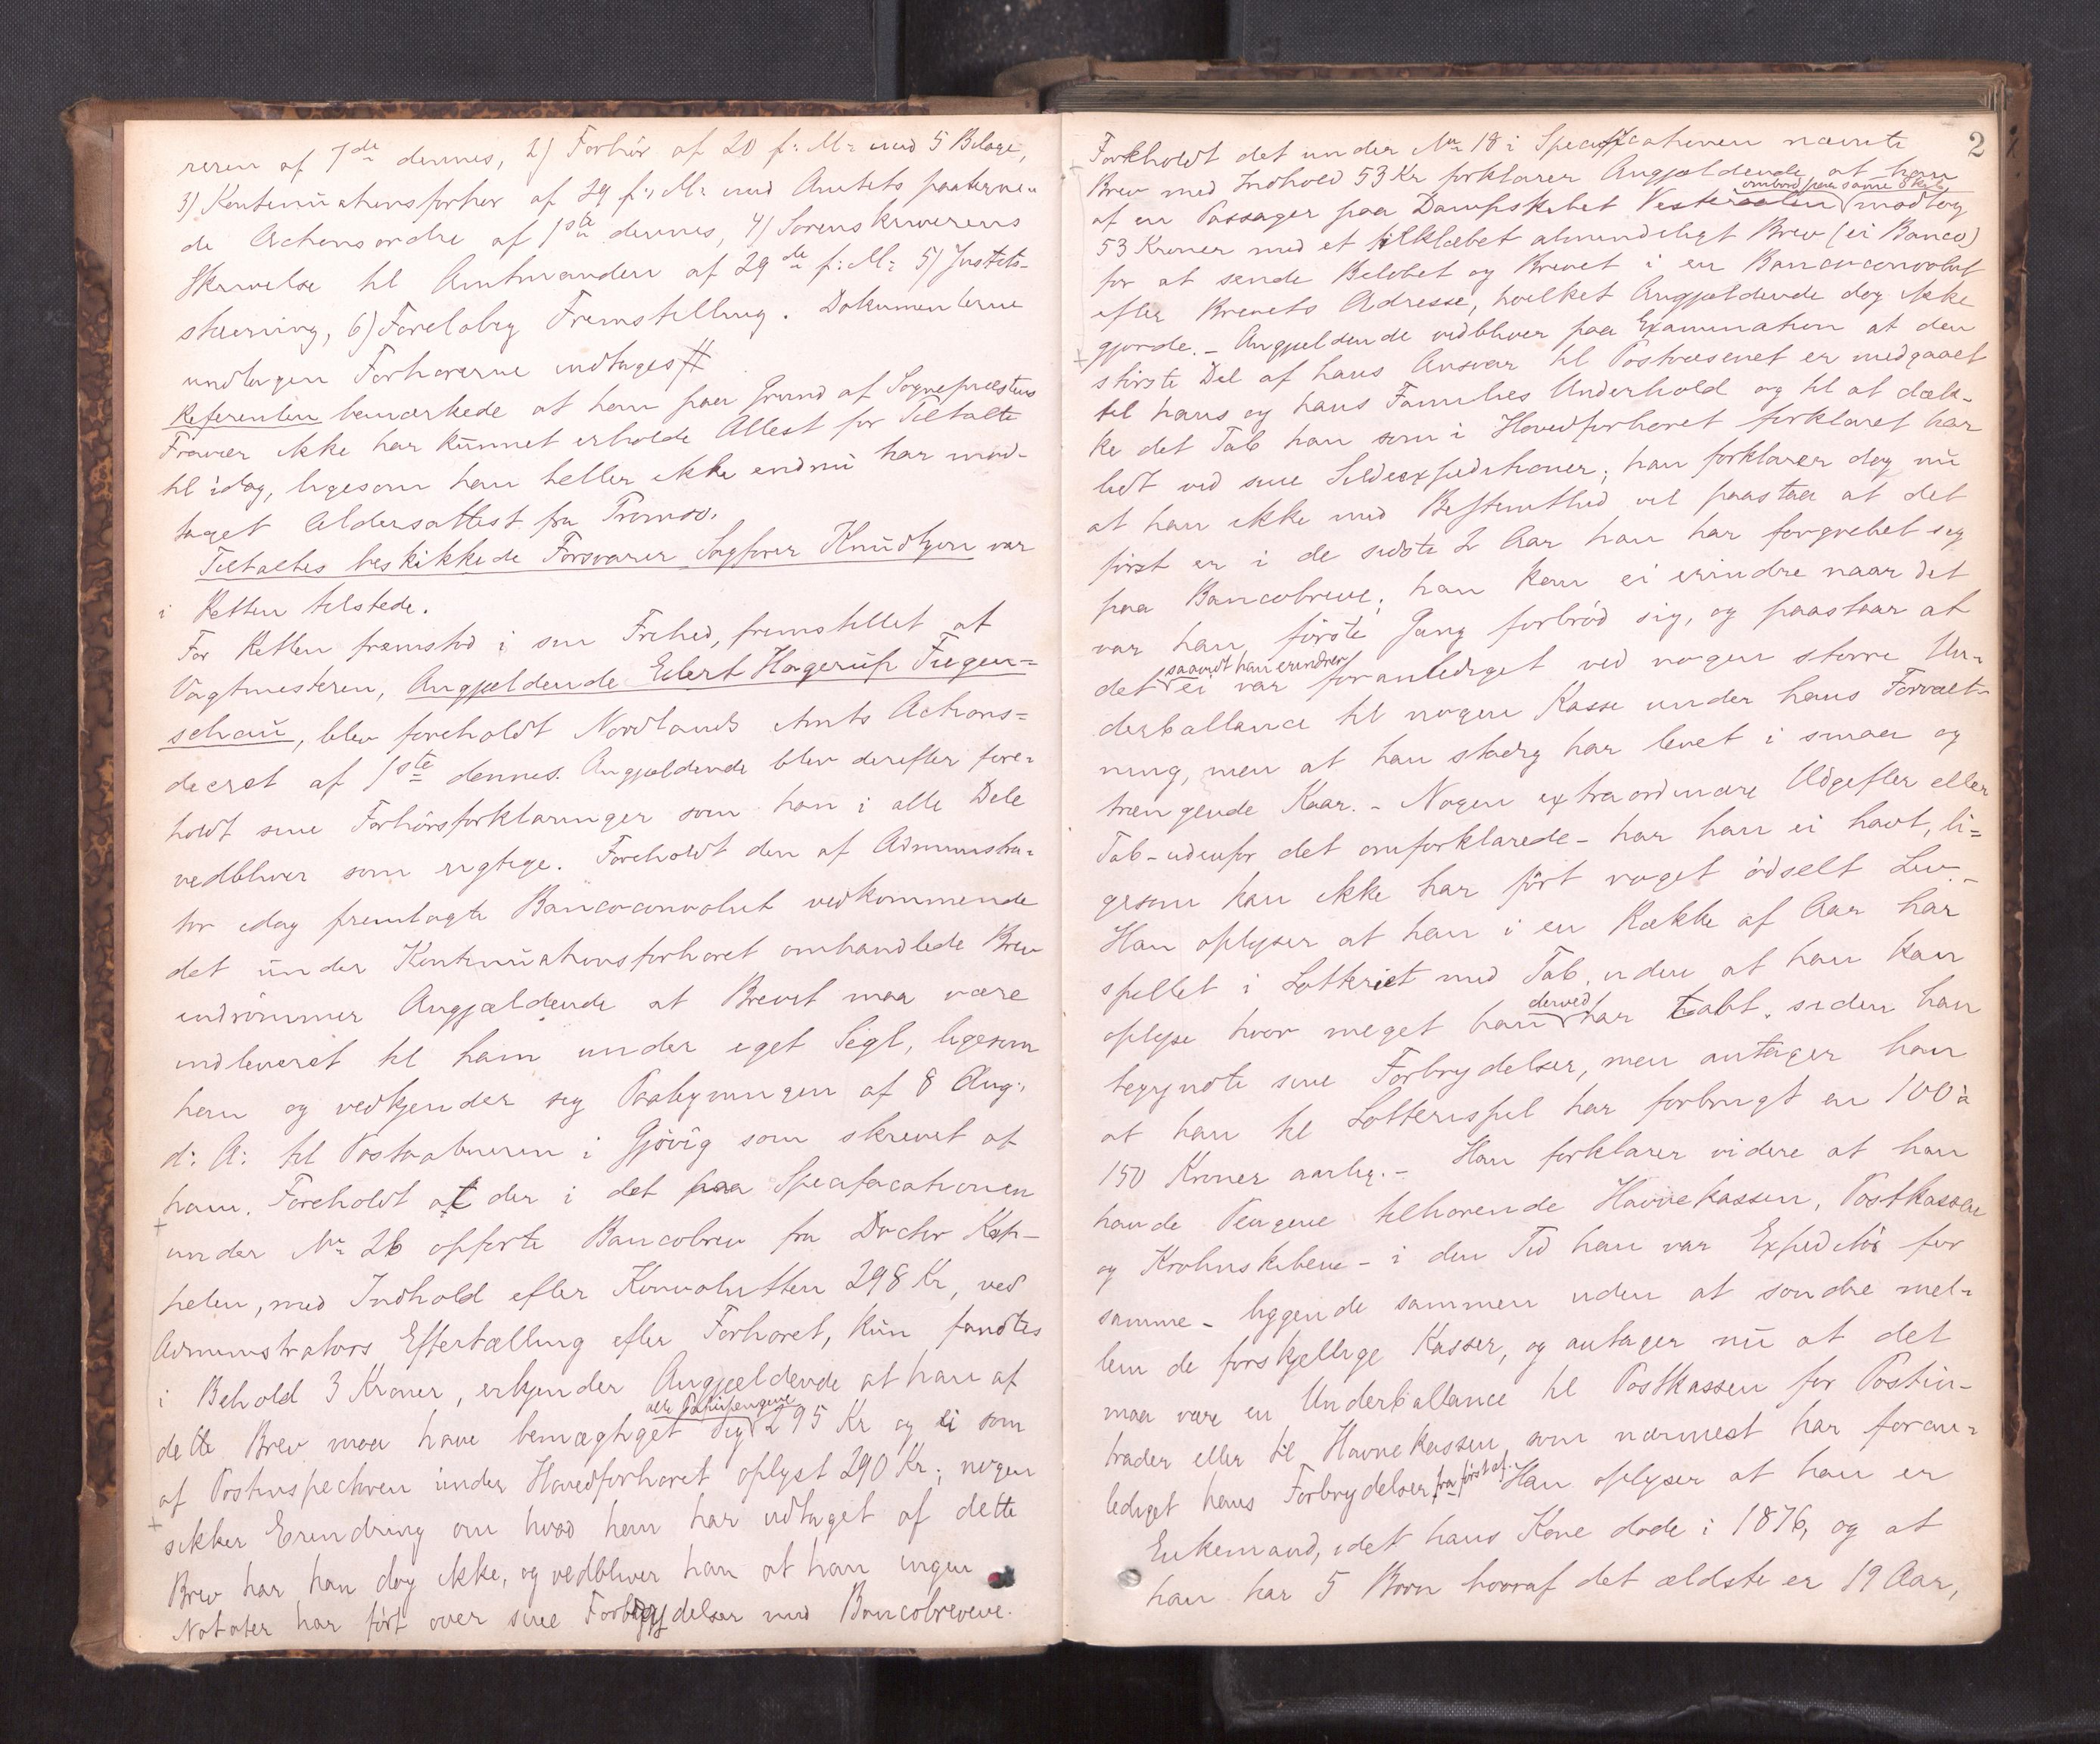 reren af 7de dennes, 2) Forhör af 20 f: M: med 5 Bilage,
3) Kontinuationsforhør af 29 f: M: med Amtets paaterne-
de Actionsordre af 1ste dennes, 4) Sorenskriverens
Skrivelse til Amtmanden af 29de f: M: 5) Justits-
stævning, 6) Foreløbig Fremstilling. Dokumenterne
undtagen Forhørerne indtages #
Referenten bemærkede at han paa Grund af Sognepræstens
Fravær ikke har kunnet erholde Attest for Tiltalte
til idag, ligesom han heller ikke endnu har mod-
taget Aldersattest fra Tromsø.
Tiltaltes beskikkede Forsvarer Sagfører Knudtzon var
i Retten tilstede.
For Retten fremstod i sin Frihed, fremstillet af
Vagtmesteren, Angjældende Eilert Hagerup Tiegen-
schou, blev foreholdt Nordlands Amts Actions-
decret af 1ste dennes. Angjældende blev derefter fore-
holdt sine Forhørsforklaringer som han i alle Dele
vedbliver som rigtige. Foreholdt den af Administra-
tor idag fremlagte Bancoconvolut vedkommende
det under Kontinuationsforhøret omhandlede Brev
indrömmer Angjældende at Brevet maa være
indleveret til ham under eget Segl, ligesom
han og vedkjender sig Paategningen af 8 Aug:
d: A: til Postaabneren i Gjövig som skrevet af
ham. Foreholdt at der i det paa Specificationen
under Nr: 26 opførte Bancobrev fra Doctor Kop-
pelen, med Indhold efter Konvolutten 298 Kr, ved
Administrators Eftertælling efter Forhøret, kun fandtes
i Behold 3 Kroner, erkjender Angjældende at han af
alle Papirpengene
dette Brev maa have bemægtiget sig 295 Kr og ei som
af Postinspectøren under Hovedforhøret oplyst 290 Kr; nogen
sikker Erindring om hvad han har udtaget af dette
Brev har han dog ikke, og vedbliver han at han ingen
Notater har ført over sine Forbrydelser med Bancobrevene.
2
Forkholdt det under Nr: 18 i Specificationen nævnte
Brev med Indhold 53 Kr forklarer Angjældende at han
ombord paa samme Skib
af en Passager paa Dampskibet Vesteraalen modtog
53 Kroner med et tilklæbet almindeligt Brev (ei Banco)
for at sende Beløbet og Brevet i en Bancoconvolut
efter Brevets Adresse, hvilket Angjældende dog ikke
gjorde. - Angjældende vedbliver paa Examination at den
största Del af hans Ansvar til Postvæsenet er medgaaet
til hans og hans Families Underhold og til at dæk-
ke det Tab han som i Hovedforhøret forklaret har
lidt ved sine Sildeexpeditioner; han forklarer dog nu
at han ikke med Bestemthed vil paastaa at det
först er i de sidste 2 Aar han har forgrebet sig
paa Bancobreve; han kan ei erindre naar det
var han förste Gang forbrød sig, og paastaar at
saavidt han erindrer
det ei var foranlediget ved nogen större Un-
derballance til nogen Kasse under hans Forvalt-
ning, men at han stadig har levet i smaa og
trængende Kaar. - Nogen extraordinære Udgifter eller
Tab - udenfor det omforklarede - har han ei havt, li-
gesom han ikke har fört noget ødselt Liv. -
Han oplyser at han i en Række af Aar har
spillet i Lotteriet med Tab, uden at han kan
derved
oplyse hvor meget han har tabt, siden han
begyndte sine Forbrydelser, men antager han
at han til Lotterispil har forbrugt en 100 à
150 Kroner aarlig. - Han forklarer videre at han
havde Pengene tilhørende Havnekassen, Postkassen
og Krohnskibene - i den Tid han var Expeditör for
samme - liggende sammen uden at sondre mel-
lem de forskjellige Kasser, og antager nu at det
maa være en Underballance til Postkassen for Postin-
trader eller til Havnekassen, som nærmest har foran-
lediget hans Forbrydelser fra först af. Han oplyser at han er
Enkemand, idet hans Kone døde i 1876, og at
han har 5 Børn hvoraf det ældste er 19 Aar,